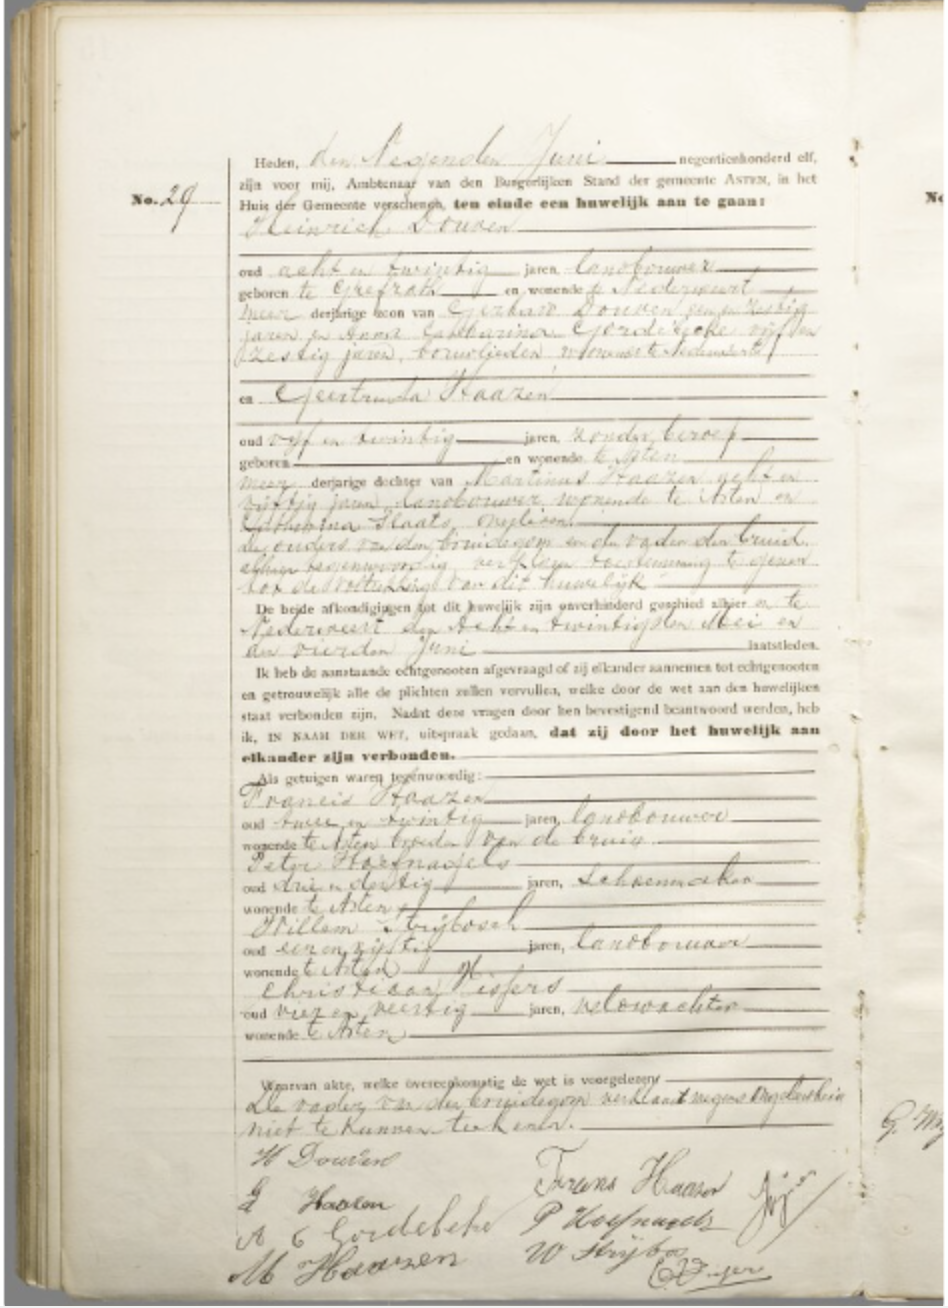 Heden, den Negenden Juni negentienhonderd elf,
zijn voor mij, Ambtenaar van den Burgerlijken Stand der gemeente ASTEN, in het
No. 29
Huis der Gemeente verschenen, ten einde een huwelijk aan te gaan:
Heinrich Douven
oud acht en twintig jaren, landbouwer
geboren te Grefrath en wonende te Nederweert
meer derjarige zoon van Gerhard Douven en zestig
jaren en Anna Catharina vijf en
zestig jaren, bouwlieden wonende te Nederweert
en Geertruda Haazen
oud vijf en twintig jaren, zonder beroep
geboren en wonende te Asten
meer derjarige dochter van Martinus Haazen acht en
vijftig jaren landbouwer wonende te Asten en
Slaats, overleden
de ouders van den bruidegom en de vader der bruid,
alhier tegenwoordig, verklaren toestemming te geven
tot de voltrekking van dit huwelijk
De beide afkondigingen tot dit huwelijk zijn onverhinderd geschied alhier en te
Nederweert den Acht en twintigsten Mei en
den vierden Juni laatstleden.
Ik heb de aanstaande echtgenooten afgevraagd of zij elkander aannemen tot echtgenooten
en getrouwelijk alle de plichten zullen vervullen, welke door de wet aan den huwelijken
staat verbonden zijn. Nadat deze vragen door hen bevestigend beantwoord werden, heb
ik, IN NAAM DER WET, uitspraak gedaan, dat zij door het huwelijk aan
elkander zijn verbonden.
Als getuigen waren tegenwoordig:
Francis Haazen
oud twee en twintig jaren, landbouwer
wonende te Asten broeder van de bruid
Peter Hoefnagels
oud drie en dertig jaren, schoenmaker
wonende te Asten
Willem Strijbosch
oud een en jaren, landbouwer
wonende te Asten
Christiaan
oud vier en veertig jaren, veldwachter
wonende te Asten
Waarvan akte, welke overeenkomstig de wet is voorgelezen
De vader van den bruidegom verklaart wegens ongeleerdheid
niet te kunnen teekenen.
H Douven
G Haazen
Frans Haazen
A C
P Hoefnagels
M Haazen
W Strijbos